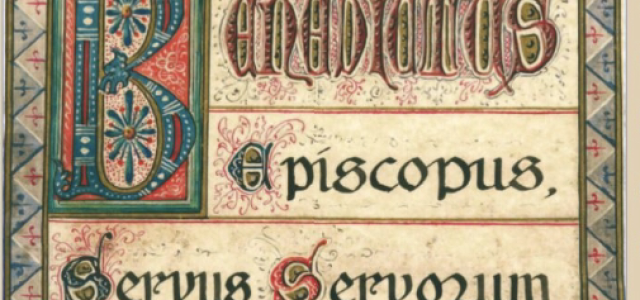 Benedictus
Episcopus,
Servus Servorum